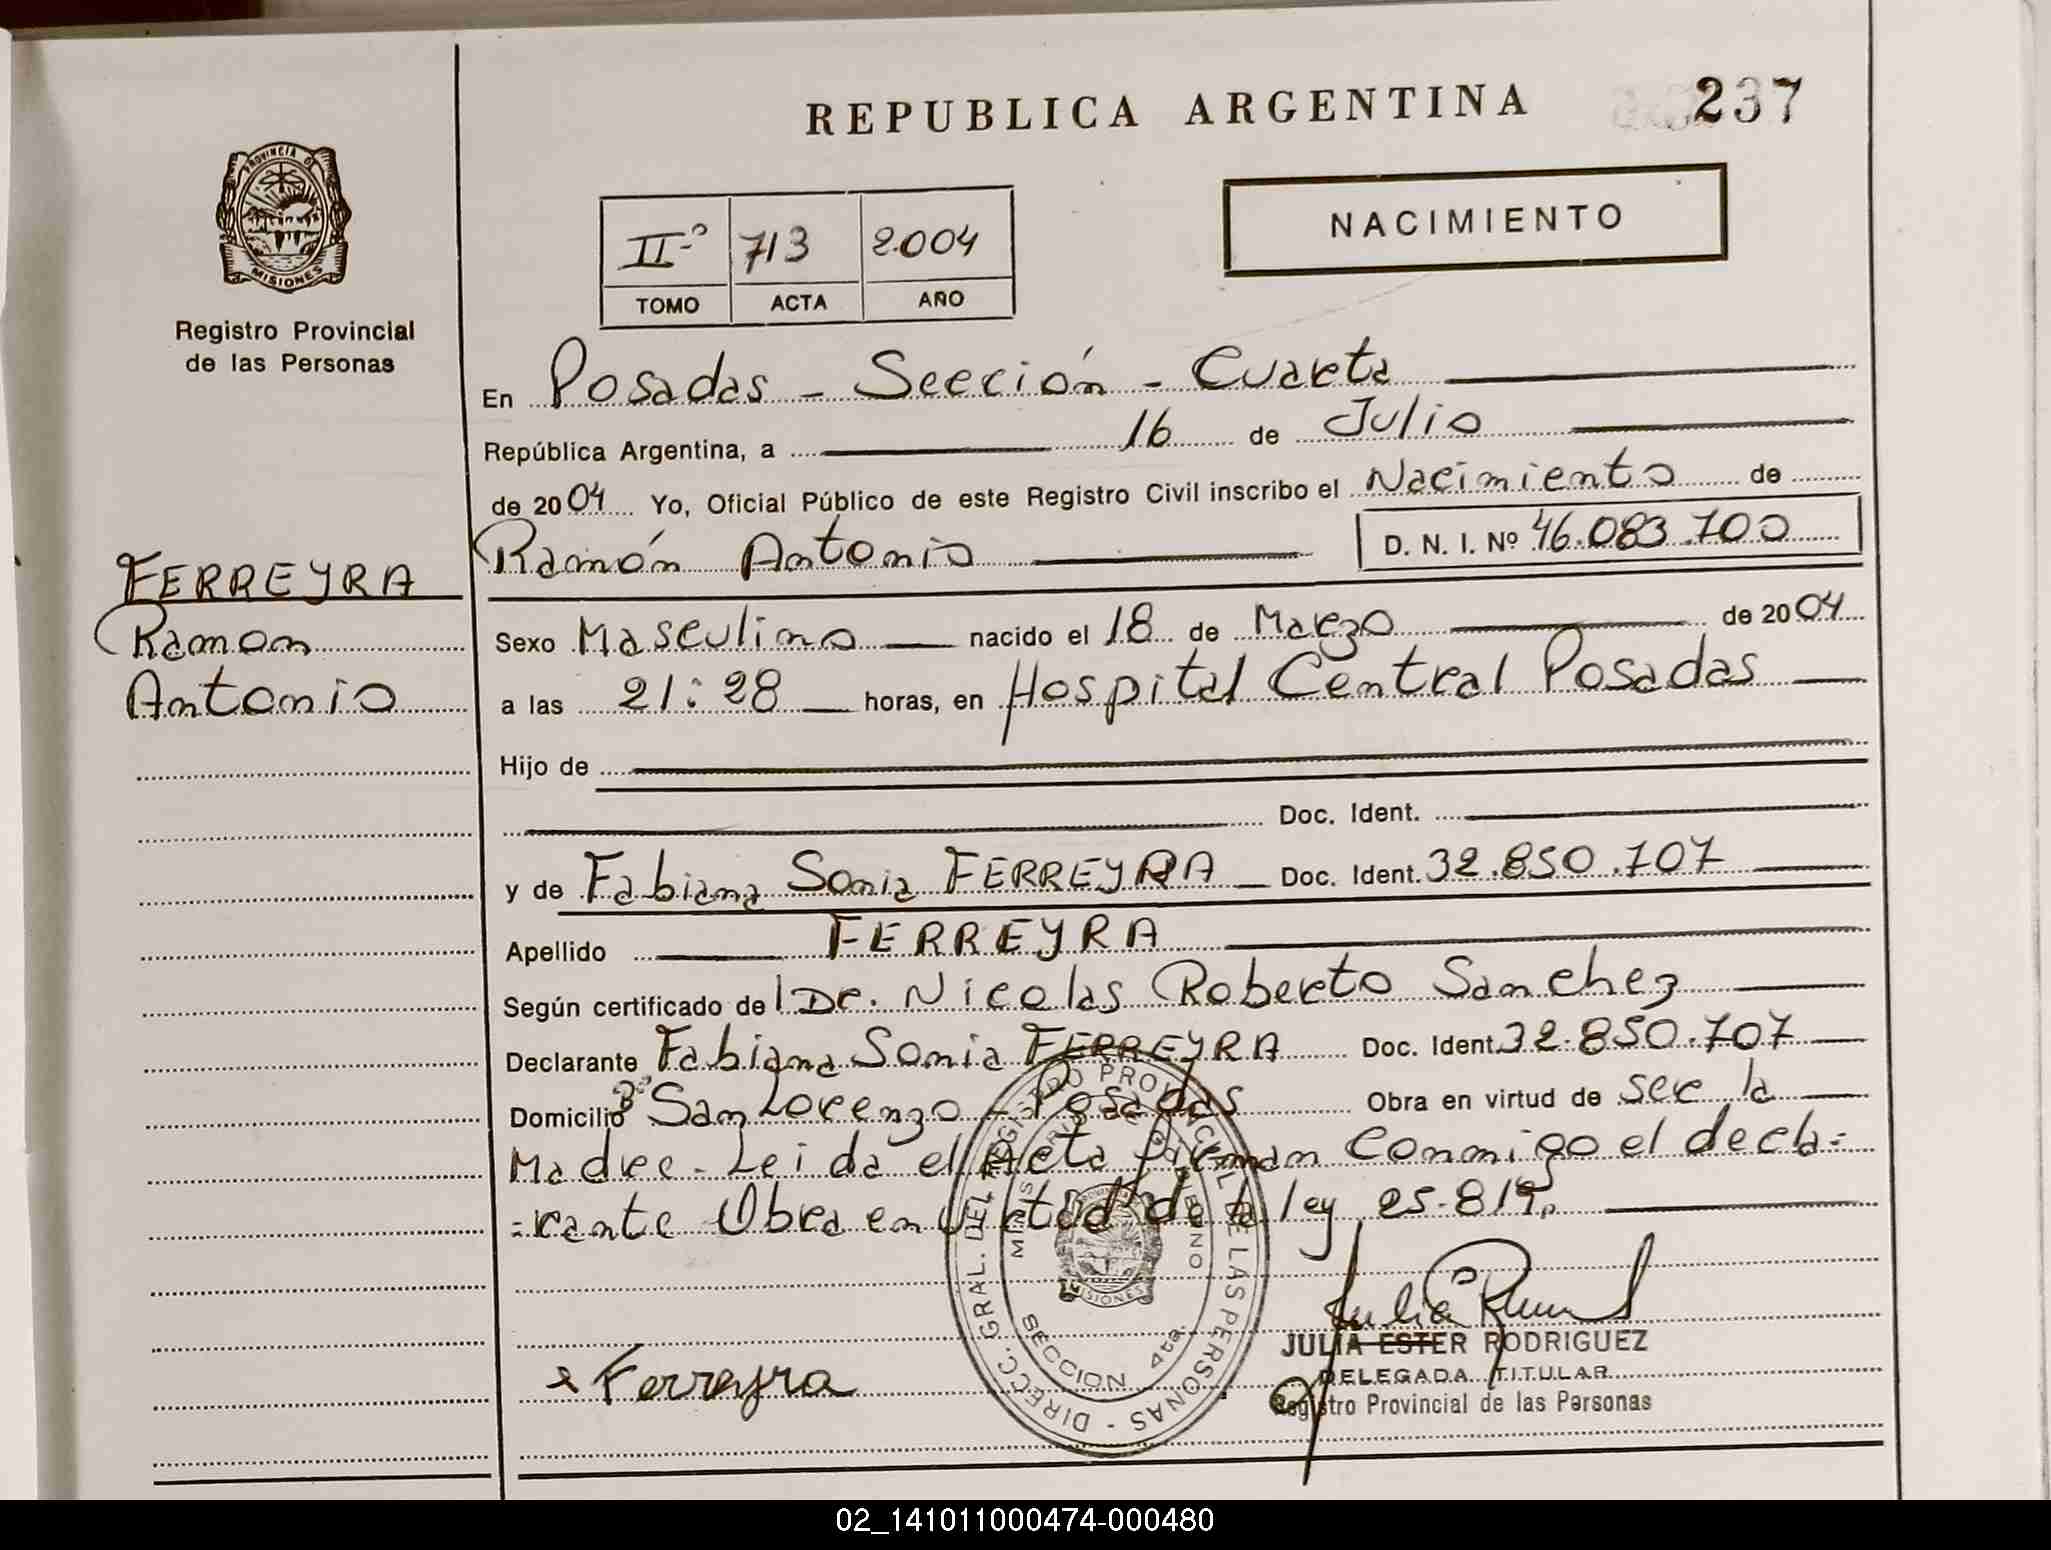 REPUBLICA ARGENTINA 237
PROVINCIA DE
MISIONES
Registro Provincial
de las Personas
NACIMIENTO
IIº 713 2.004
TOMO ACTA AÑO
En Posadas - Sección - Cuarta
República Argentina, a 16 de Julio
de 2004 Yo, Oficial Público de este Registro Civil inscribo el Nacimiento de
Ramón Antonio D. N. I. Nº 46.083.700
FERREYRA
Ramon
Antonio
Sexo Masculino nacido el 18 de Marzo de 2004
a las 21:28 horas, en Hospital Central Posadas
Hijo de
Doc. Ident.
y de Fabiana Sonia FERREYRA Doc. Ident. 32.850.707
Apellido FERREYRA
Según certificado de Dr. Nicolas Roberto Sanchez
Declarante Fabiana Sonia FERREYRA Doc. Ident. 32.850.707
Domicilio Bº San Lorenzo - Posadas Obra en virtud de ser la
Madre - Leida el Acta firman Conmigo el decla=
=rante Obra en Virtud de la ley 25.819.
DIRECC. GRAL. DEL REGISTRO PROVINCIAL DE LAS PERSONAS -
MINISTERIO DE GOBIERNO
MISIONES
SECCION 4ta.
Ferreyra
JULIA ESTER RODRIGUEZ
DELEGADA TITULAR
Registro Provincial de las Personas
02_141011000474-000480